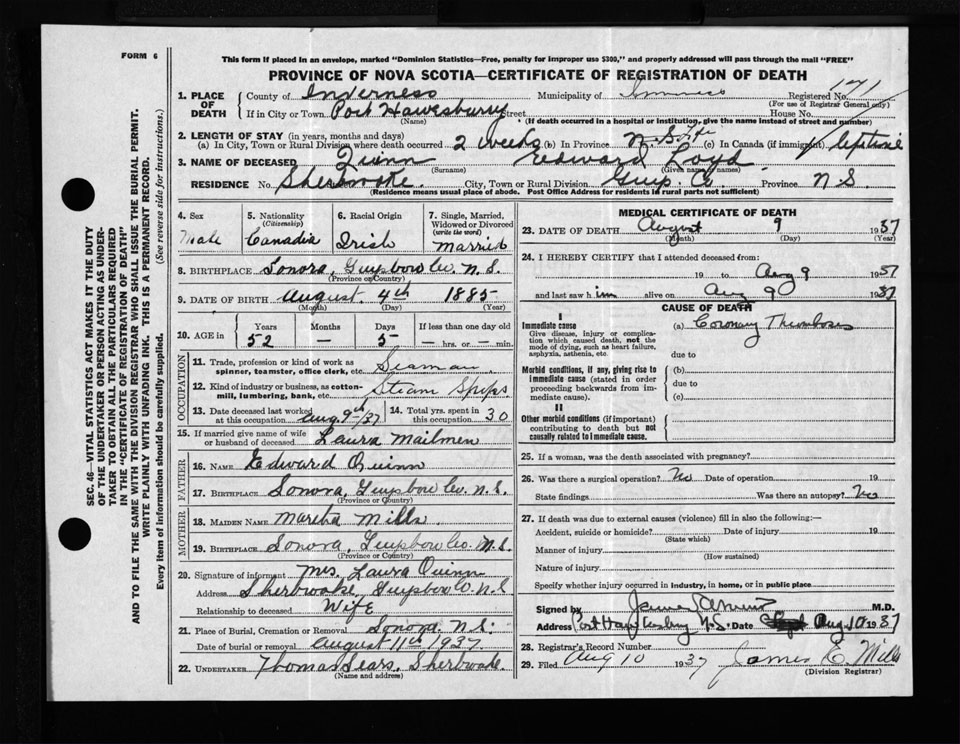 FORM 6
This form if placed in an envelope, marked "Dominion Statistics—Free, penalty for improper use $300," and properly addressed will pass through the mail "FREE"
PROVINCE OF NOVA SCOTIA—CERTIFICATE OF REGISTRATION OF DEATH
SEC. 46—VITAL STATISTICS ACT MAKES IT THE DUTY
OF THE UNDERTAKER OR PERSON ACTING AS UNDER-
TAKER TO OBTAIN ALL THE PARTICULARS REQUIRED
IN THE "CERTIFICATE OF REGISTRATION OF DEATH"
AND TO FILE THE SAME WITH THE DIVISION REGISTRAR WHO SHALL ISSUE THE BURIAL PERMIT.
WRITE PLAINLY WITH UNFADING INK. THIS IS A PERMANENT RECORD.
Every item of information should be carefully supplied. (See reverse side for instructions.)
1. PLACE OF DEATH
County of Inverness Municipality of Inverness Registered No. 171
(For use of Registrar General only)
If in City or Town Port Hawkesbury Street House No.
(Name) (If death occurred in a hospital or institution, give the name instead of street and number)
2. LENGTH OF STAY (in years, months and days)
(a) In City, Town or Rural Division where death occurred 2 weeks (b) In Province N. S. life (c) In Canada (if immigrant) lifetime
3. NAME OF DECEASED Quinn Edward Loyd
(Surname) (Given name/names)
RESIDENCE No. Sherbrooke City, Town or Rural Division Guys. Co. Province N S.
(Residence means usual place of abode. Post Office Address for Residents in rural parts not sufficient)
4. Sex Male
5. Nationality (Citizenship) Canadia
6. Racial Origin Irish
7. Single, Married, Widowed or Divorced (write the word) Married
8. BIRTHPLACE Sonora, Guysboro Co. N. S.
(Province or Country)
9. DATE OF BIRTH August 4th 1885
(Month) (Day) (Year)
10. AGE in Years 52 Months — Days 5 If less than one day old — hrs. or — min.
OCCUPATION
11. Trade, profession or kind of work as spinner, teamster, office clerk, etc. Seaman
12. Kind of industry or business, as cotton-mill, lumbering, bank, etc. Steam Ships
13. Date deceased last worked at this occupation Aug. 9th/37
14. Total yrs. spent in this occupation 30
15. If married give name of wife or husband of deceased Laura Mailmen
FATHER
16. NAME Edward Quinn
17. BIRTHPLACE Sonora, Guysboro Co. N. S.
(Province or Country)
MOTHER
18. MAIDEN NAME Martha Mills
19. BIRTHPLACE Sonora, Guysboro Co. N. S.
(Province or Country)
20. Signature of informant Mrs. Laura Quinn
Address Sherbrooke, Guysboro Co. N. S
Relationship to deceased Wife
21. Place of Burial, Cremation or Removal Sonora, N.S.
Date of burial or removal August 11th 1937.
22. UNDERTAKER Thomas Sears, Sherbrooke
(Name and address)
MEDICAL CERTIFICATE OF DEATH
23. DATE OF DEATH August 9 1937
(Month) (Day) (Year)
24. I HEREBY CERTIFY that I attended deceased from:
19 to Aug 9 1937
and last saw him alive on Aug 9 1937
CAUSE OF DEATH
I
Immediate cause (a) Coronary Thrombosis
Give disease, injury or complication which caused death, not the mode of dying, such as heart failure, asphyxia, asthenia, etc.
due to
Morbid conditions, if any, giving rise to immediate cause (stated in order proceeding backwards from immediate cause).
(b)
due to
(c)
II
Other morbid conditions (if important) contributing to death but not causally related to immediate cause.
25. If a woman, was the death associated with pregnancy?
26. Was there a surgical operation? No Date of operation 19
State findings Was there an autopsy? No
27. If death was due to external causes (violence) fill in also the following:—
Accident, suicide or homicide? Date of injury 19
(State which)
Manner of injury
(How sustained)
Nature of injury
Specify whether injury occurred in industry, in home, or in public place
Signed by M.D.
Address Port Hawkesbury N.S. Date Aug 10 1937
28. Registrar's Record Number
29. Filed Aug 10 1937 James E. Mills
(Division Registrar)